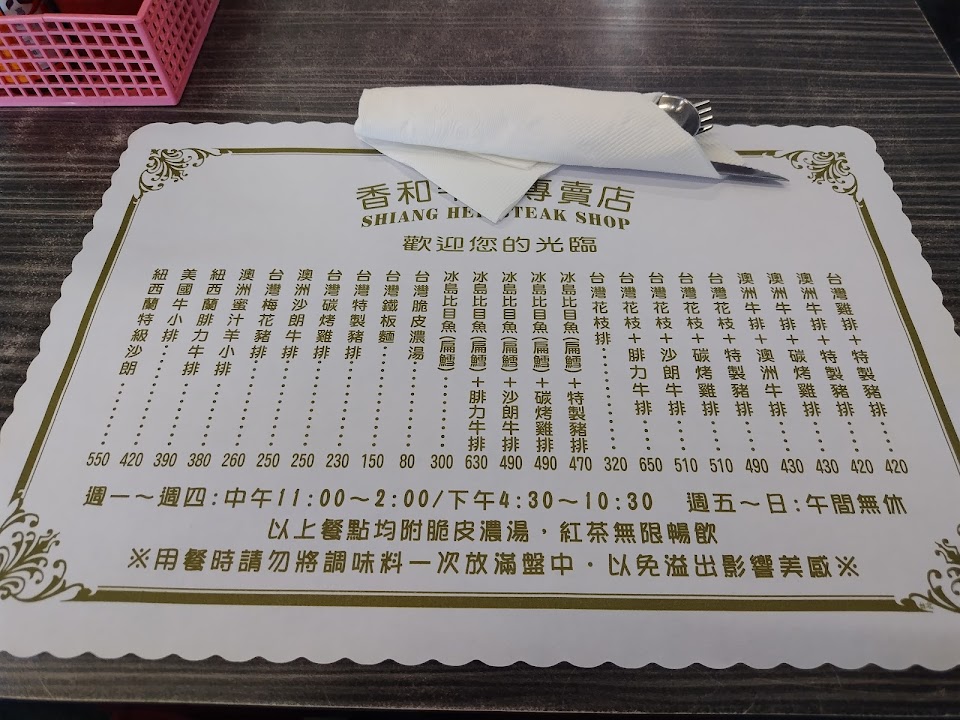 香和 專賣店
SHIANG HE STEAK SHOP
歡迎您的光臨
紐西蘭特級沙朗……550
美國牛小排……420
紐西蘭腓力牛排……390
澳洲蜜汁羊小排……380
台灣梅花豬排……260
澳洲沙朗牛排……250
台灣碳烤雞排……250
台灣特製豬排……230
台灣鐵板麵……150
台灣脆皮濃湯……80
冰島比目魚(扁鱈)……300
冰島比目魚(扁鱈)+腓力牛排630
冰島比目魚(扁鱈)+沙朗牛排490
冰島比目魚(扁鱈)+碳烤雞排490
冰島比目魚(扁鱈)+特製豬排470
台灣花枝排……320
台灣花枝+腓力牛排…650
台灣花枝+沙朗牛排…510
台灣花枝+碳烤雞排…510
台灣花枝+特製豬排…490
澳洲牛排+澳洲牛排…430
澳洲牛排+碳烤雞排…430
澳洲牛排+特製豬排…420
台灣雞排+特製豬排…420
週一～週四:中午11:00～2:00/下午4:30～10:30 週五～日:午間無休
以上餐點均附脆皮濃湯，紅茶無限暢飲
※用餐時請勿將調味料一次放滿盤中．以免溢出影響美感※